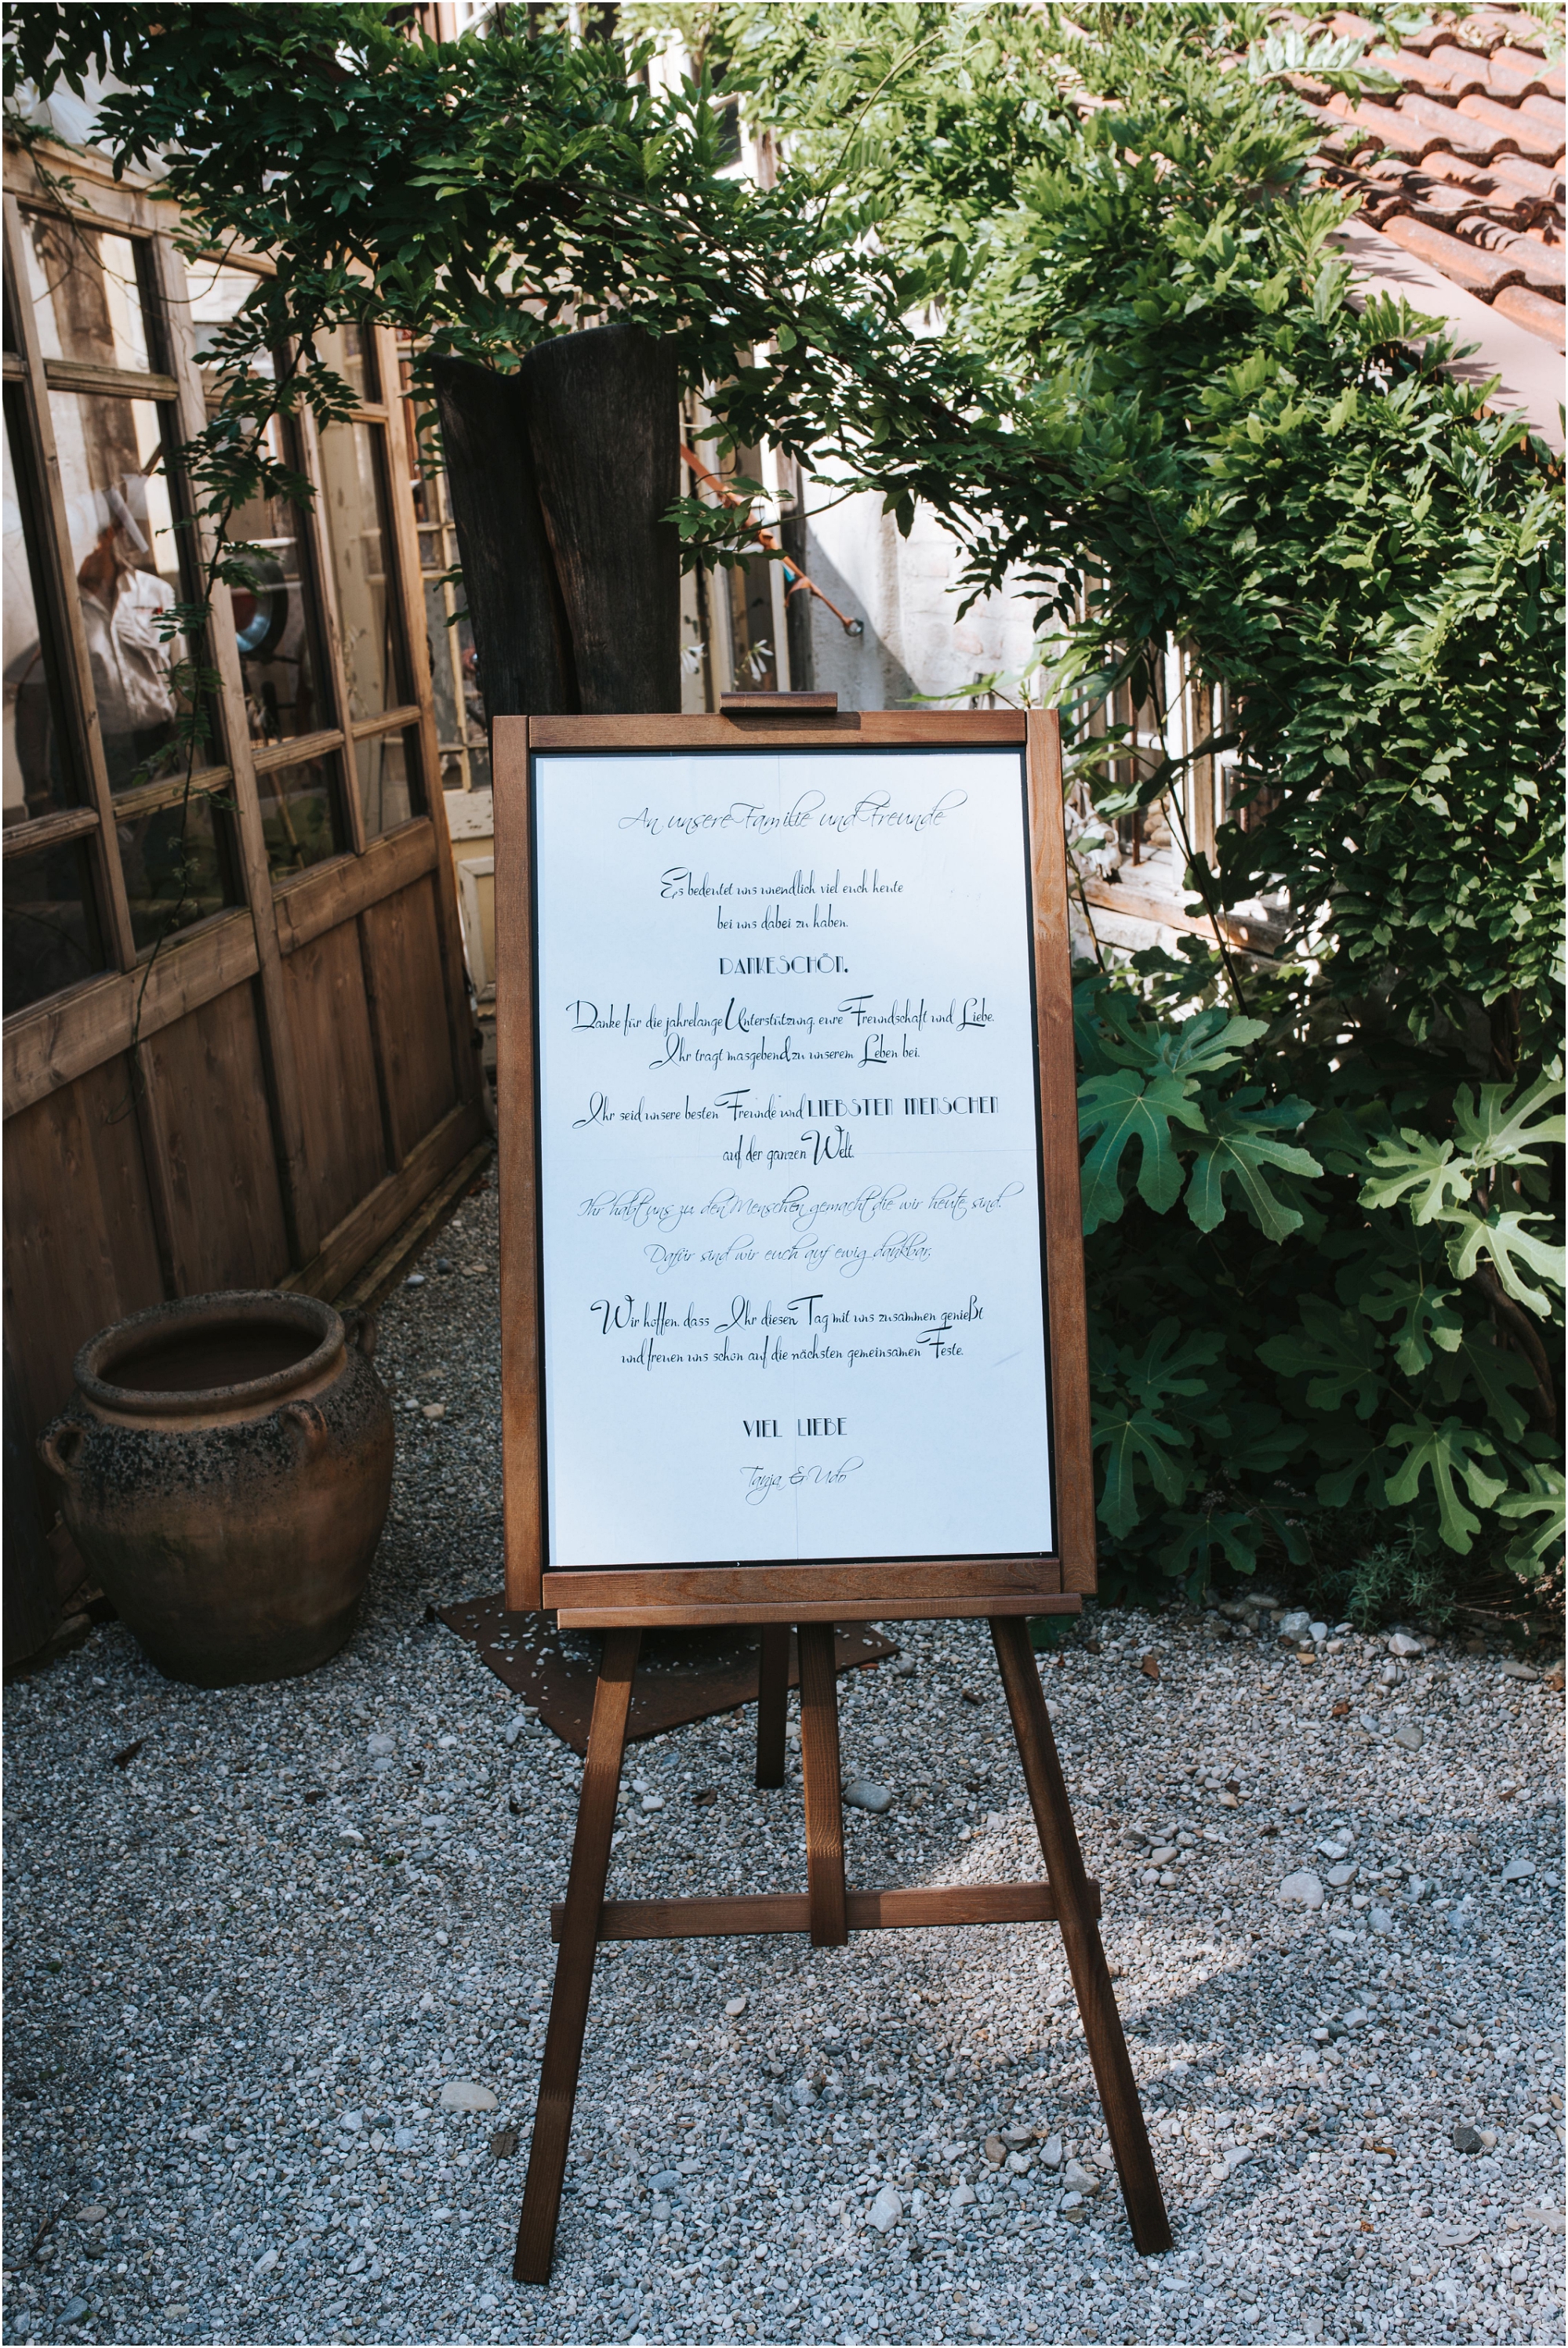 An unsere Familie und Freunde
Es bedeutet uns unendlich viel euch heute
bei uns dabei zu haben.
DANKESCHÖN.
Danke für die jahrelange Unterstützung, eure Freundschaft und Liebe.
Ihr tragt masgebend zu unserem Leben bei.
Ihr seid unsere besten Freunde und LIEBSTEN MENSCHEN
auf der ganzen Welt.
Ihr habt uns zu den Menschen gemacht die wir heute sind.
Dafür sind wir euch auf ewig dankbar.
Wir hoffen, dass Ihr diesen Tag mit uns zusammen genießt
und freuen uns schon auf die nächsten gemeinsamen Feste.
VIEL LIEBE
Tanja & Udo